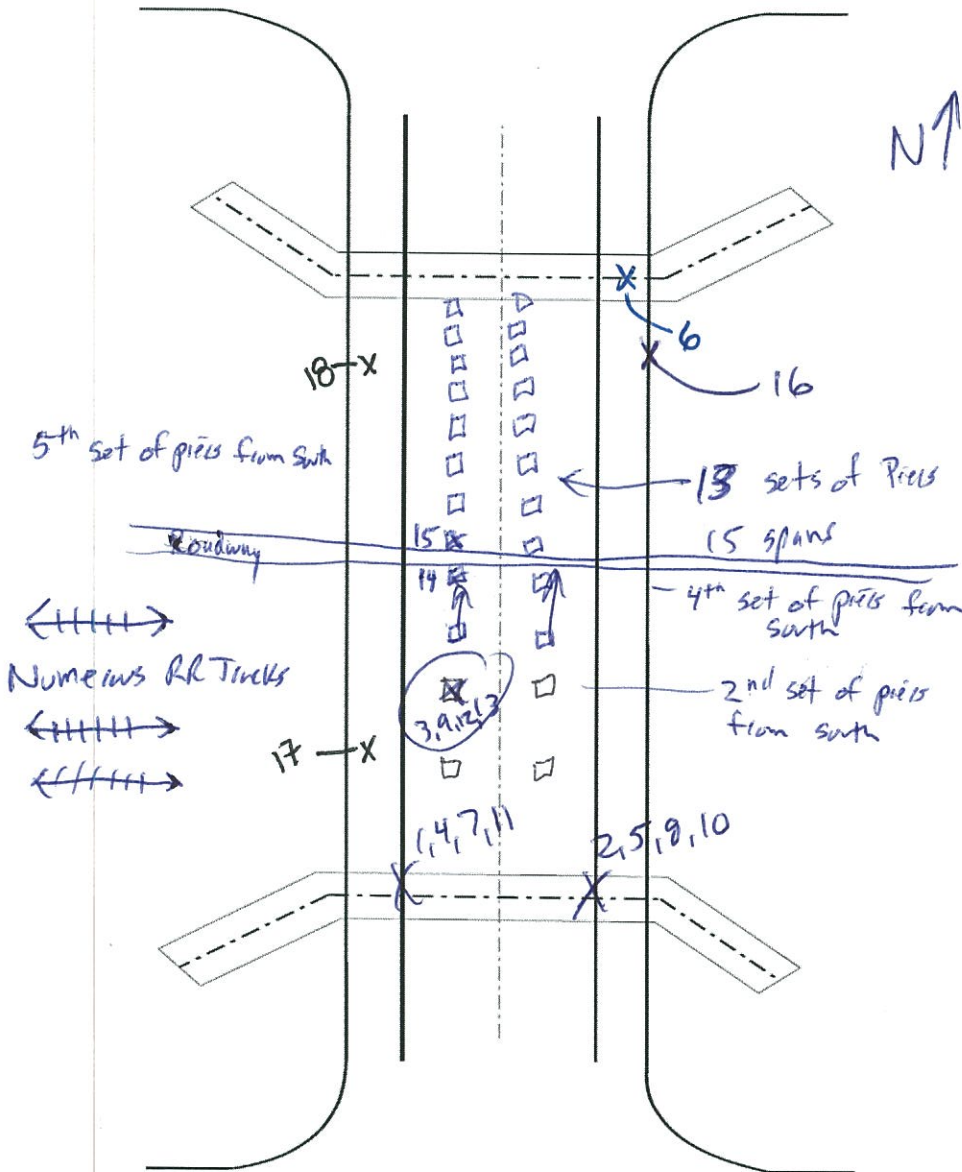 N
6
18
16
5th set of piers from South
13 sets of Piers
15
Roadway
15 spans
14
4th set of piers from south
Numerous RR Tracks
2nd set of piers from south
3,9,12,13
17
1,4,7,11
2,5,8,10